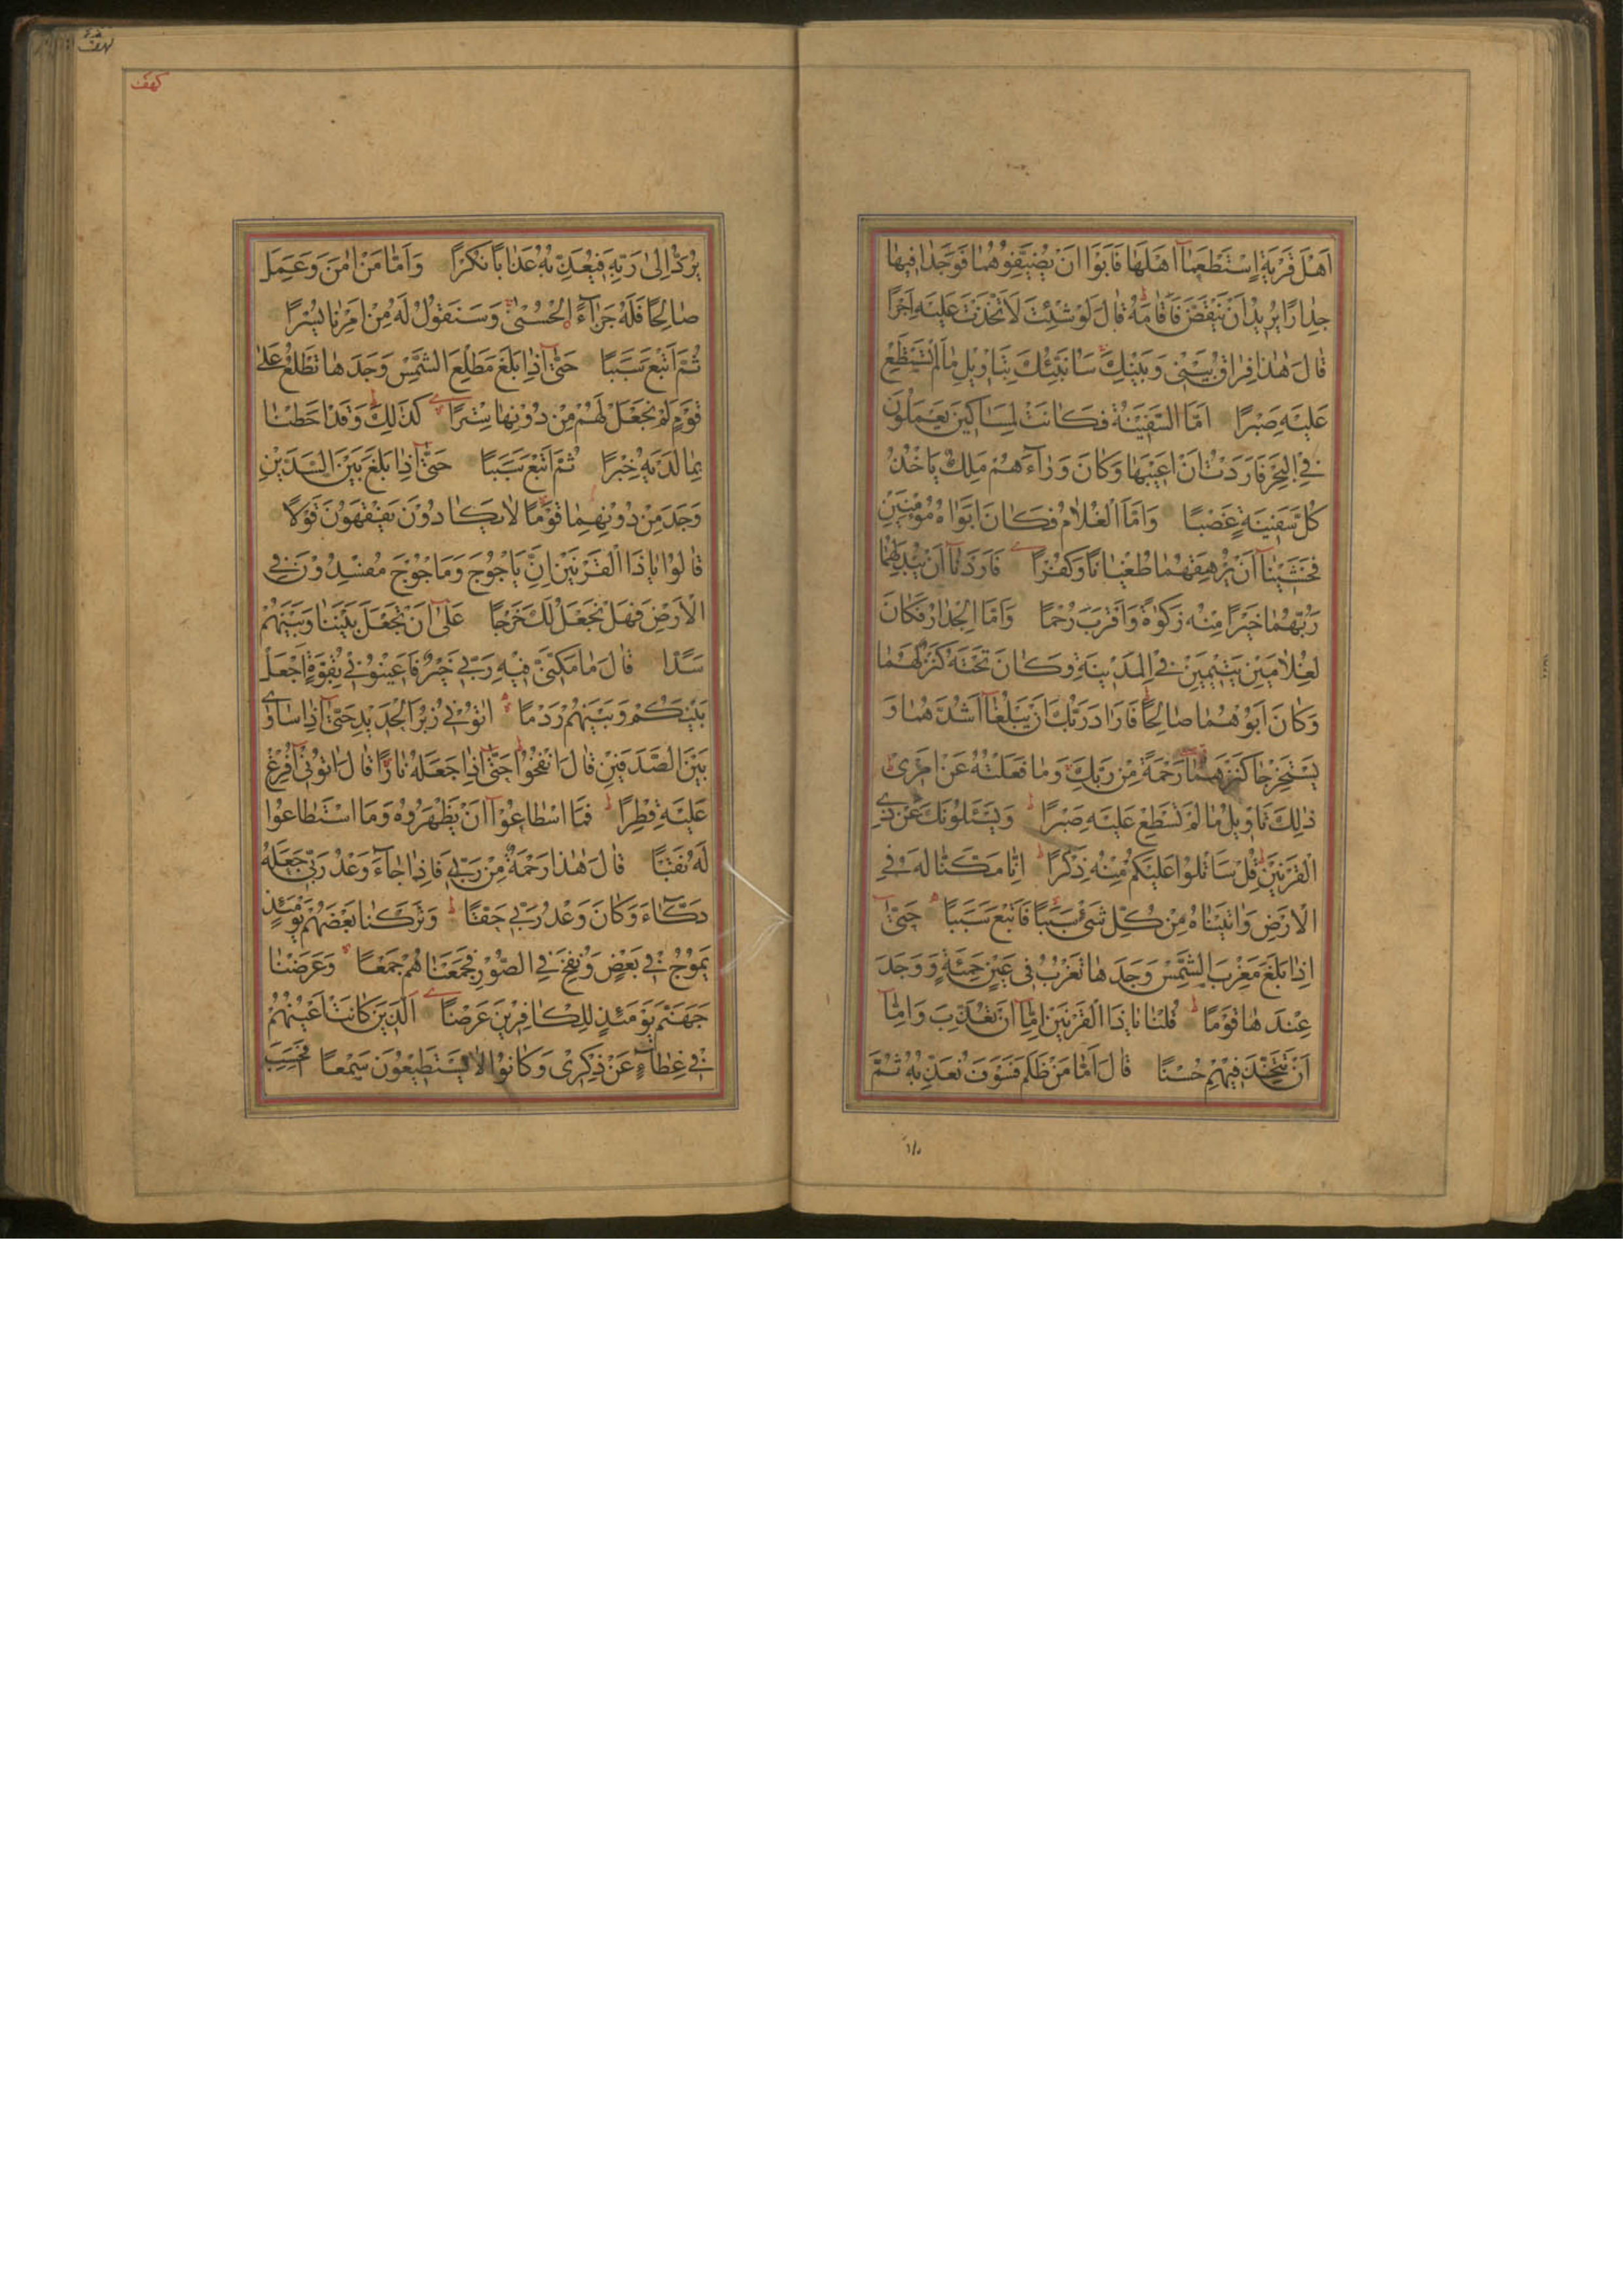 اَهْلَ قَرْيَةٍ اِسْتَطْعَمَاۤ اَهْلَهَا فَاَبَوْا اَنْ يُضَيِّفُوْهُمَا فَوَجَدَا فِيهَا
جِدَارًا يُرِيدُ اَنْ يَنْقَضَّ فَاَقَامَهُ قَالَ لَوْ شِئْتَ لَاتَّخَذْتَ عَلَيْهِ اَجْرًا
قَالَ هٰذَا فِرَاقُ بَيْنِى وَبَيْنِكَ سَاُنَبِّئُكَ بِتَاْوِيلِ مَا لَمْ تَسْتَطِعْ
عَلَيْهِ صَبْرًا اَمَّا السَّفِيْنَةُ فَكَانَتْ لِمَسَاكِينَ يَعْمَلُونَ
فِى الْبَحْرِ فَاَرَدْتُ اَنْ اَعِيْبَهَا وَكَانَ وَرَآءَهُمْ مَلِكٌ يَاْخُذُ
كُلَّ سَفِيْنَةٍ غَصْبًا وَاَمَّا الْغُلَامُ فَكَانَ اَبَوَاهُ مُؤْمِنَيْنِ
فَخَشِيْنَاۤ اَنْ يُرْهِقَهُمَا طُغْيَانًا وَكُفْرًا فَاَرَدْنَاۤ اَنْ يُبْدِلَهُمَا
رَبُّهُمَا خَيْرًا مِنْهُ زَكٰوةً وَاَقْرَبَ رُحْمًا وَاَمَّا الْجِدَارُ فَكَانَ
لِغُلَامَيْنِ يَتِيْمَيْنِ فِى الْمَدِيْنَةِ وَكَانَ تَحْتَهُ كَنْزٌ لَهُمَا
وَكَانَ اَبُوْهُمَا صَالِحًا فَاَرَادَ رَبُّكَ اَنْ يَبْلُغَاۤ اَشُدَّهُمَا وَ
يَسْتَخْرِجَا كَنْزَهُمَا رَحْمَةً مِنْ رَبِّكَ وَمَا فَعَلْتُهُ عَنْ اَمْرِى
ذٰلِكَ تَاْوِيلُ مَا لَمْ تَسْطِعْ عَلَيْهِ صَبْرًا وَيَسْئَلُونَكَ عَنْ ذِى
الْقَرْنَيْنِ قُلْ سَاَتْلُوا عَلَيْكُمْ مِنْهُ ذِكْرًا اِنَّا مَكَّنَّا لَهُ فِى
الْاَرْضِ وَاٰتَيْنَاهُ مِنْ كُلِّ شَىْءٍ سَبَبًا فَاَتْبَعَ سَبَبًا حَتّٰىۤ
اِذَا بَلَغَ مَغْرِبَ الشَّمْسِ وَجَدَهَا تَغْرُبُ فِى عَيْنٍ حَمِئَةٍ وَوَجَدَ
عِنْدَهَا قَوْمًا قُلْنَا يَا ذَا الْقَرْنَيْنِ اِمَّاۤ اَنْ تُعَذِّبَ وَاِمَّاۤ
اَنْ تَتَّخِذَ فِيْهِمْ حُسْنًا قَالَ اَمَّا مَنْ ظَلَمَ فَسَوْفَ نُعَذِّبُهُ ثُمَّ
كهف
يُرَدُّ اِلٰى رَبِّهِ فَيُعَذِّبُهُ عَذَابًا نُكْرًا وَاَمَّا مَنْ اٰمَنَ وَعَمِلَ
صَالِحًا فَلَهُ جَزَآءً الْحُسْنٰى وَسَنَقُوْلُ لَهُ مِنْ اَمْرِنَا يُسْرًا
ثُمَّ اَتْبَعَ سَبَبًا حَتّٰىۤ اِذَا بَلَغَ مَطْلِعَ الشَّمْسِ وَجَدَهَا تَطْلُعُ عَلٰى
قَوْمٍ لَمْ نَجْعَلْ لَهُمْ مِنْ دُوْنِهَا سِتْرًا كَذٰلِكَ وَقَدْ اَحَطْنَا
بِمَا لَدَيْهِ خُبْرًا ثُمَّ اَتْبَعَ سَبَبًا حَتّٰىۤ اِذَا بَلَغَ بَيْنَ السَّدَّيْنِ
وَجَدَ مِنْ دُوْنِهِمَا قَوْمًا لَا يَكَادُوْنَ يَفْقَهُوْنَ قَوْلًا
قَالُوْا يَا ذَا الْقَرْنَيْنِ اِنَّ يَاْجُوْجَ وَمَاْجُوْجَ مُفْسِدُوْنَ فِى
الْاَرْضِ فَهَلْ نَجْعَلُ لَكَ خَرْجًا عَلٰىۤ اَنْ تَجْعَلَ بَيْنَنَا وَبَيْنَهُمْ
سَدًّا قَالَ مَا مَكَّنِّى فِيْهِ رَبِّى خَيْرٌ فَاَعِيْنُوْنِى بِقُوَّةٍ اَجْعَلْ
بَيْنَكُمْ وَبَيْنَهُمْ رَدْمًا اٰتُوْنِى زُبَرَ الْحَدِيْدِ حَتّٰىۤ اِذَا سَاوٰى
بَيْنَ الصَّدَفَيْنِ قَالَ انْفُخُوْا حَتّٰىۤ اِذَا جَعَلَهُ نَارًا قَالَ اٰتُوْنِىۤ اُفْرِغْ
عَلَيْهِ قِطْرًا فَمَا اسْطَاعُوْاۤ اَنْ يَظْهَرُوْهُ وَمَا اسْتَطَاعُوْا
لَهُ نَقْبًا قَالَ هٰذَا رَحْمَةٌ مِنْ رَبِّى فَاِذَا جَآءَ وَعْدُ رَبِّى جَعَلَهُ
دَكَّآءَ وَكَانَ وَعْدُ رَبِّى حَقًّا وَتَرَكْنَا بَعْضَهُمْ يَوْمَئِذٍ
يَمُوْجُ فِى بَعْضٍ وَنُفِخَ فِى الصُّوْرِ فَجَمَعْنَاهُمْ جَمْعًا وَعَرَضْنَا
جَهَنَّمَ يَوْمَئِذٍ لِلْكَافِرِيْنَ عَرْضًا اَلَّذِيْنَ كَانَتْ اَعْيُنُهُمْ
فِى غِطَآءٍ عَنْ ذِكْرِى وَكَانُوْا لَا يَسْتَطِيْعُوْنَ سَمْعًا اَفَحَسِبَ